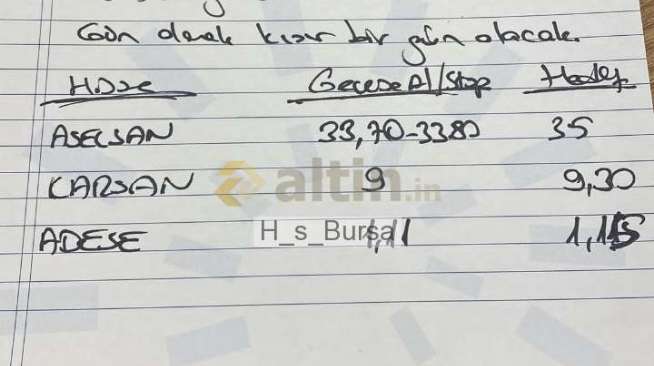 Gün olarak kısır bir gün olacak.
Hisse Geçerse Al/Stop Hedef
ASELSAN 33,70-3380 35
KARSAN 9 9,30
altin.in
ADESE 1,11 1,15
H_s_Bursa